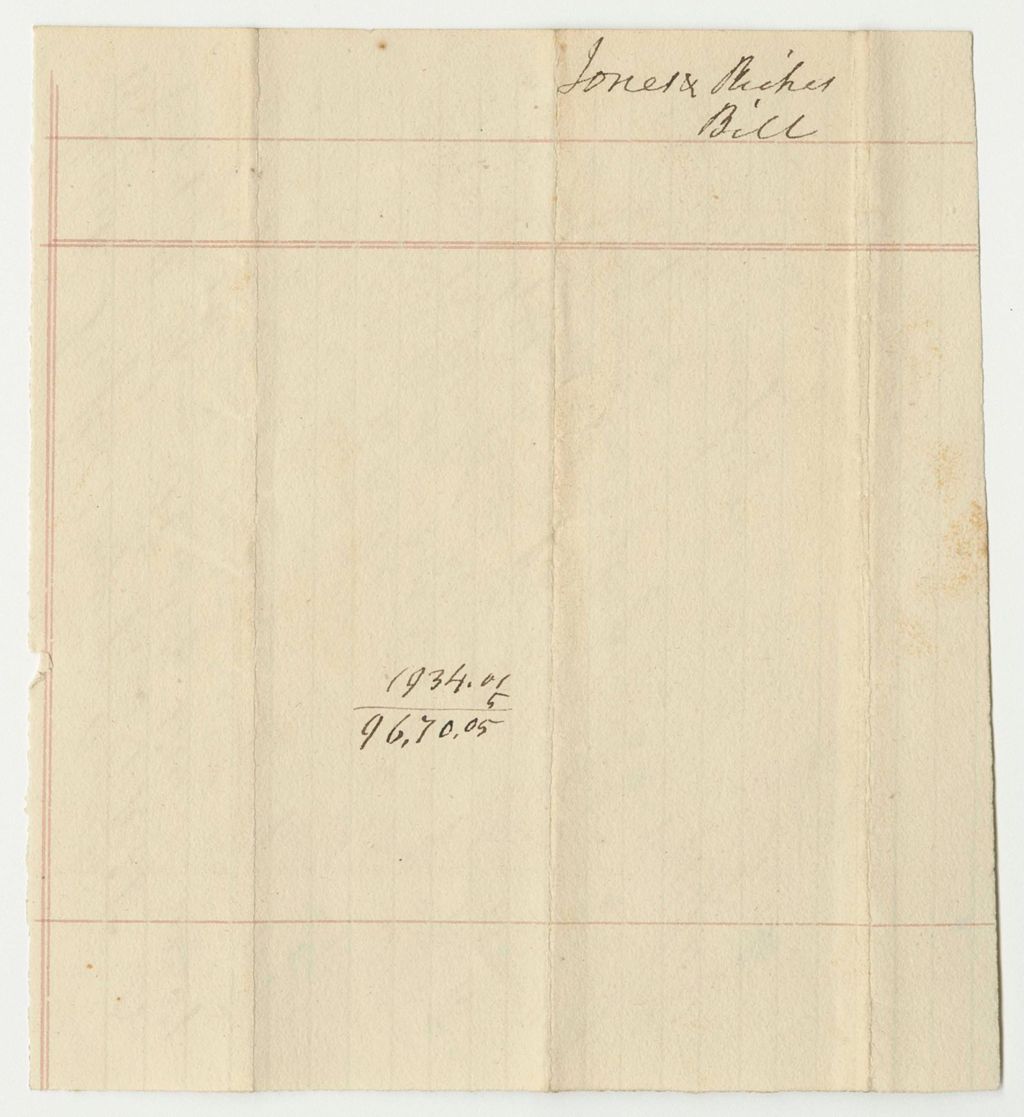 Jones & Riches
Bill
1934.01
5
96,70.05